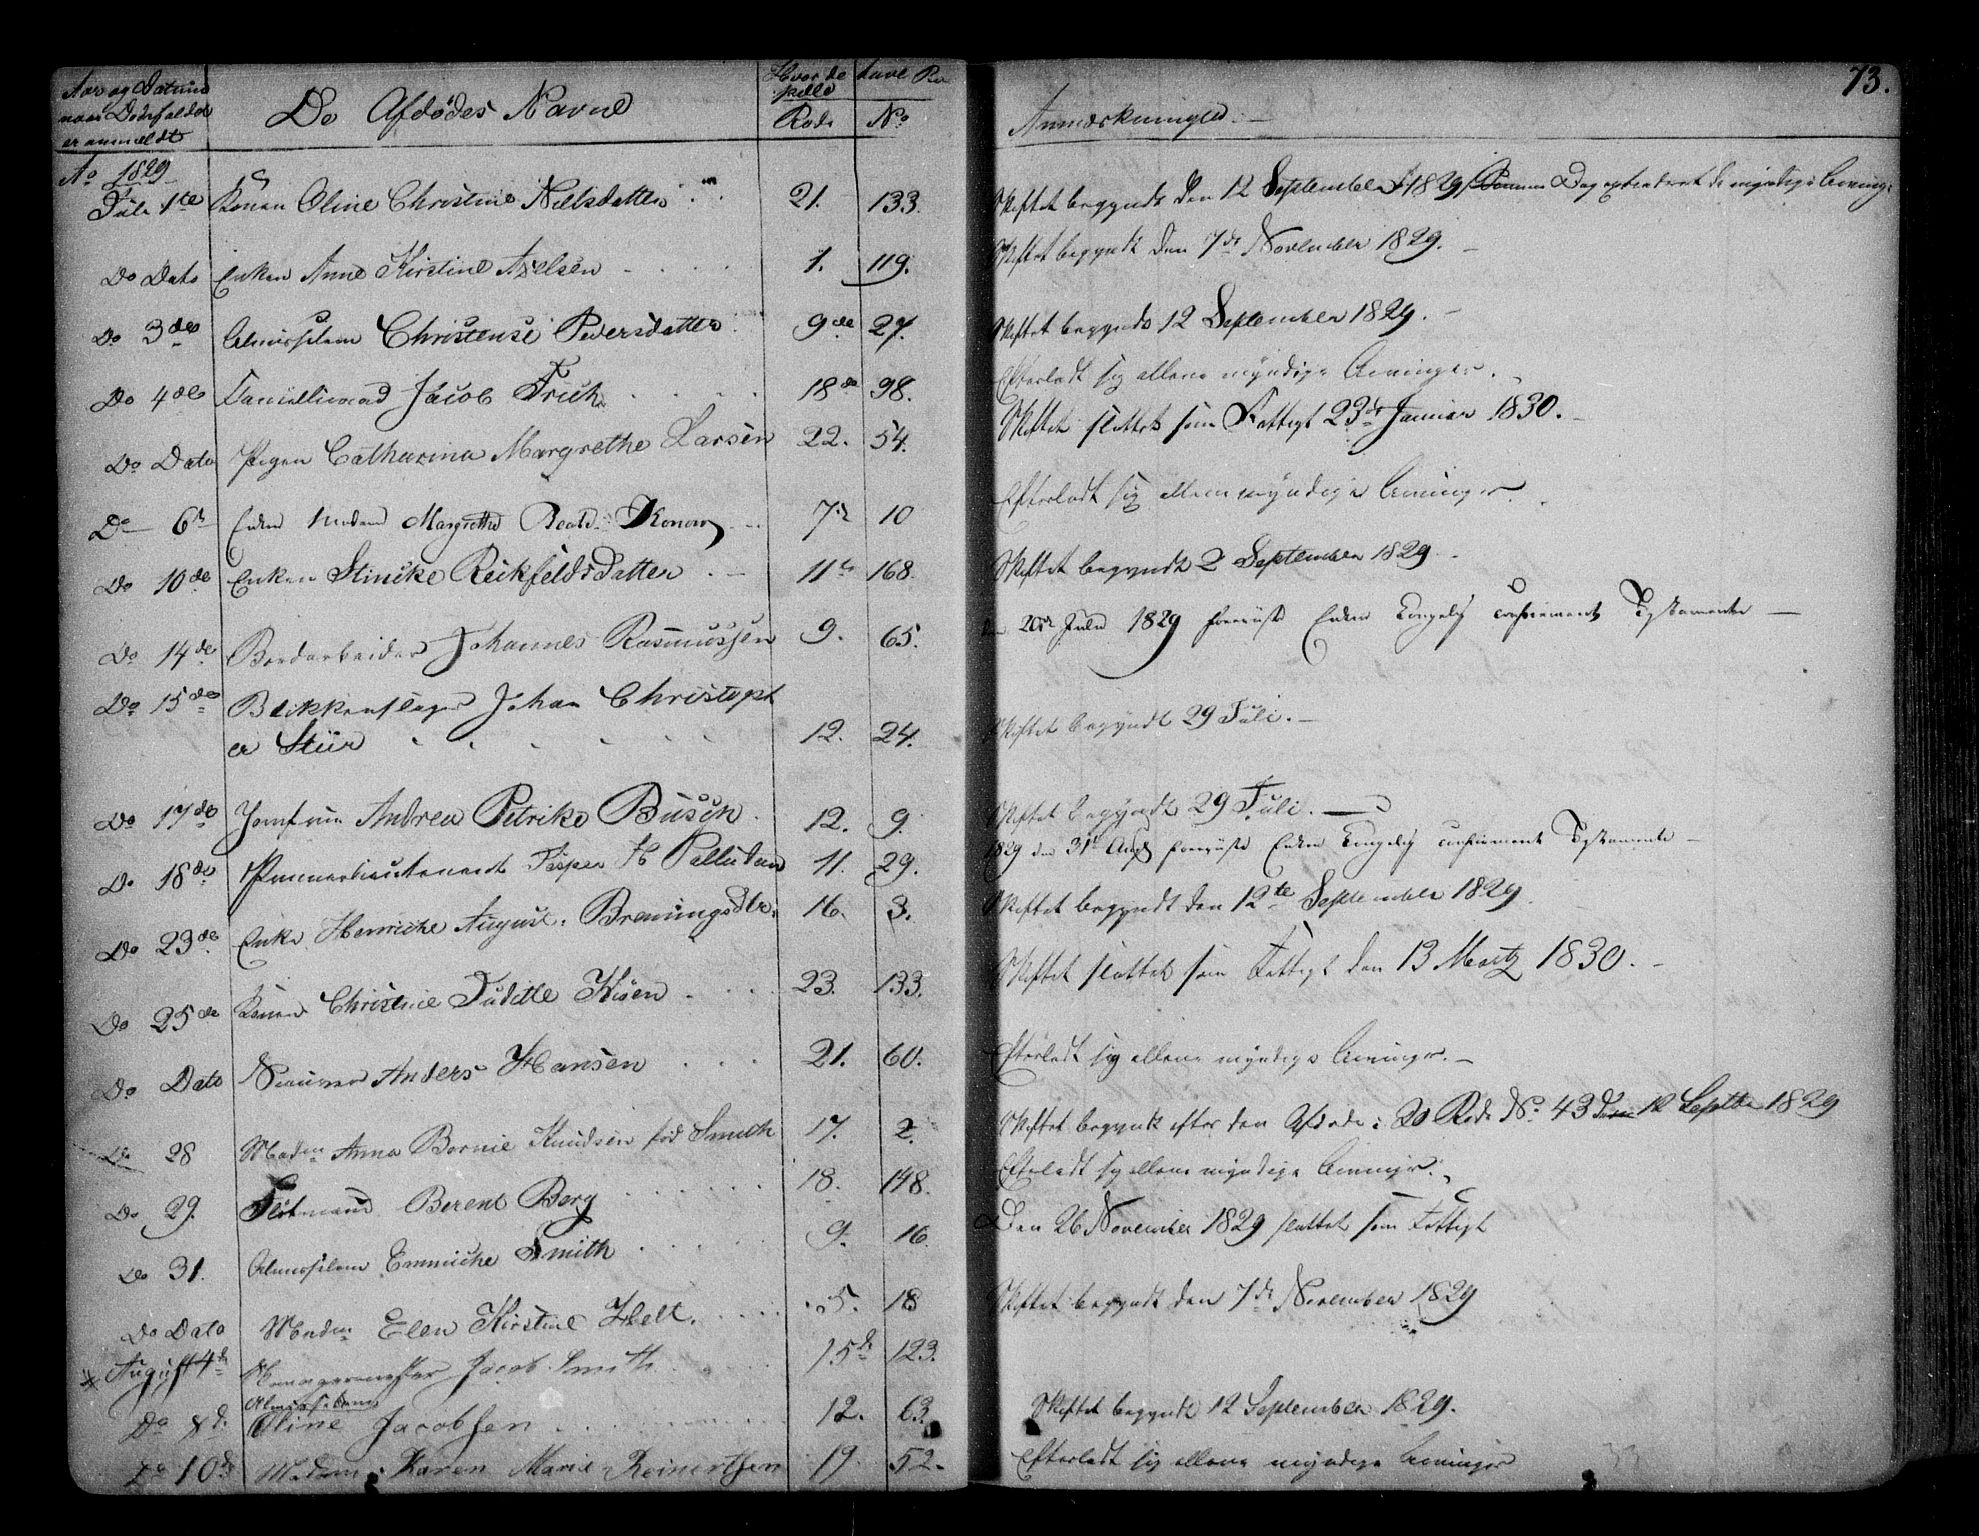 73.
Aar og Datum
naar Dødsfaldet
er anmeldt
De Afdødes Navne
Hvor de have
Rode No
Anmærkninger
Ao 1829
Juli 1te Konen Oline Christine Nielsdatter 21. 133. Skiftet begyndt den 12 September 1829 Dag myndige Arvinger
Do Dato Enken Anne Kirstine Axelsen 1. 119. Skiftet begyndt den 7de November 1829.
Do 3de Almisselem Christense Pedersdatter 9de 27. Skiftet begyndt 12 September 1829.
Do 4de Jacob Frich 18de 98. Efterladt sig allene myndige Arvinger.
Do Dato Pigen Catharina Margrethe Larsen 22. 54. Skiftet sluttet som Fattigt 23de Januar 1830.
Do 6te Enken Madam Margrethe Beate Konow 7de 10 Efterladt sig allene myndige Arvinger.
Do 10de Enken Stincke Reckfeldsdatter 11te 168. Skiftet begyndt 2 September 1829
Do 14de Bordarbeider Johannes Rasmussen 9. 65. 20de Julii 1829 foreviiste Enken Kongelig confirmeret Testamente
Do 15de Blikkenslager Johan Christoph
er Stür 12. 24. Skiftet begyndt 29 Juli.
Do 17de Jomfrue Andrea Petrike Busch 12. 9. Skiftet begyndt 29 Juli.
Do 18de Premierlieutenant Jesper H Palludan 11. 29. 1829 den 31te Aug foreviiste Enken Kongelig confirmeret Testamente
Do 23de Enke Henriche August. Breuningsdtr. 16. 3. Skiftet begyndt den 12te September 1829
Do 25de Konen Christine Judithe 23. 133. Skiftet sluttet som Fattigt den 13 Martz 1830.
Do Dato Anders Hansen 21. 60. Efterladt sig allene myndige Arvinger.
Do 28 Madm Anna Bornie Knudsen fød Smith 17. 2. Skiftet begyndt efter den Afdøde i 20 Rode No 43 den 12 Septbr 1829
Do 29. Berent Berg 18. 148. Efterladt sig allene myndige Arvinger.
Do 31. Almisselem Emmiche Smith 9. 16. Den 26 November 1829 sluttet som Fattigt
Do Dato Madm Elen Kirstine Helt. 5. 18 Skiftet begyndt den 7de November 1829
August 4de Jacob Smith 15de 123.
Almisselem
Do 8de Oline Jacobsen 12. 63. Skiftet begyndt 12 September 1829.
Do 10de Madam Karen Marie Reinertsen 19. 52. Efterladt sig allene myndige Arvinger